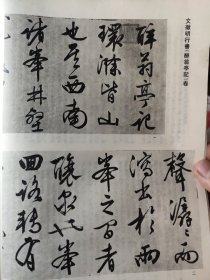 文徵明行書《醉翁亭記》卷
醉翁亭記
環滁皆山
也其西南
諸峯林壑
聲潺々而
瀉出於兩
峯之間者
釀泉也峯
回路轉有